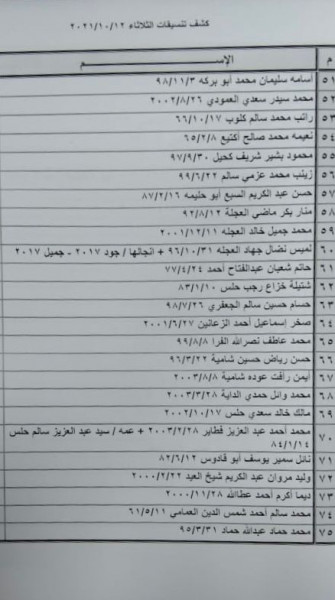 كشف تنسيقات الثلاثاء ٢٠٢١/١٠/١٢
م الإســـم
٥١ اسامه سليمان محمد أبو بركه ٩٨/١١/٣
٥٢ محمد سيدر سعدي العمودي ٢٠٠٢/٨/٢٦
٥٣ راتب محمد سالم كلوب ٦٦/١٠/١٧
٥٤ نعيمه محمد صالح اكتيع ٦٥/٢/٨
٥٥ محمود بشير شريف كحيل ٩٧/٩/٣٠
٥٦ زينب محمد عزمي سالم ٩٩/٦/٢٢
٥٧ حسن عبد الكريم السبع أبو حليمه ٨٧/٢/١٦
٥٨ منار بكر ماضي العجلة ٩٢/٨/١٢
٥٩ محمد جميل خالد العجلة ٢٠٠١/١٢/١١
٦٠ لميس نضال جهاد العجله ٩٦/١٠/٣١ + انجالها / جود ٢٠١٧ - جميل ٢٠١٧
٦١ حاتم شعبان عبدالفتاح أحمد ٧٧/٤/٢٤
٦٢ شتيلة خزاع رجب حلس ٨٣/١/١٠
٦٣ حسام حسين سالم الجعفري ٩٨/٧/٢٦
٦٤ صخر إسماعيل أحمد الزعانين ٢٠٠١/٦/٢٧
٦٥ محمد عاطف نصرالله الفرا ٩٩/٨/٨
٦٦ حسن رياض حسين شامية ٩٦/٣/٢٢
٦٧ أيمن رأفت عوده شامية ٢٠٠٣/٨/٨
٦٨ محمد وائل حمدي الداية ٢٠٠٣/٣/٢٨
٦٩ مالك خالد سعدي حلس ٢٠٠٢/١٠/١٧
٧٠ محمد أحمد عبد العزيز فطاير ٢٠٠٣/٢/٢٨ + عمه / سيد عبد العزيز سالم حلس
٨٤/١/١٤
٧١ نائل سمير يوسف أبو قادوس ٨٢/٦/١٢
٧٢ وليد مروان عبد الكريم شيخ العيد ٢٠٠٠/٢/٢٢
٧٣ ديما أكرم أحمد عطاالله ٢٠٠٠/١١/٢٨
٧٤ محمد سالم أحمد شمس الدين العمامي ٦١/٥/١١
٧٥ محمد حماد عبدالله حماد ٩٥/٣/٣١